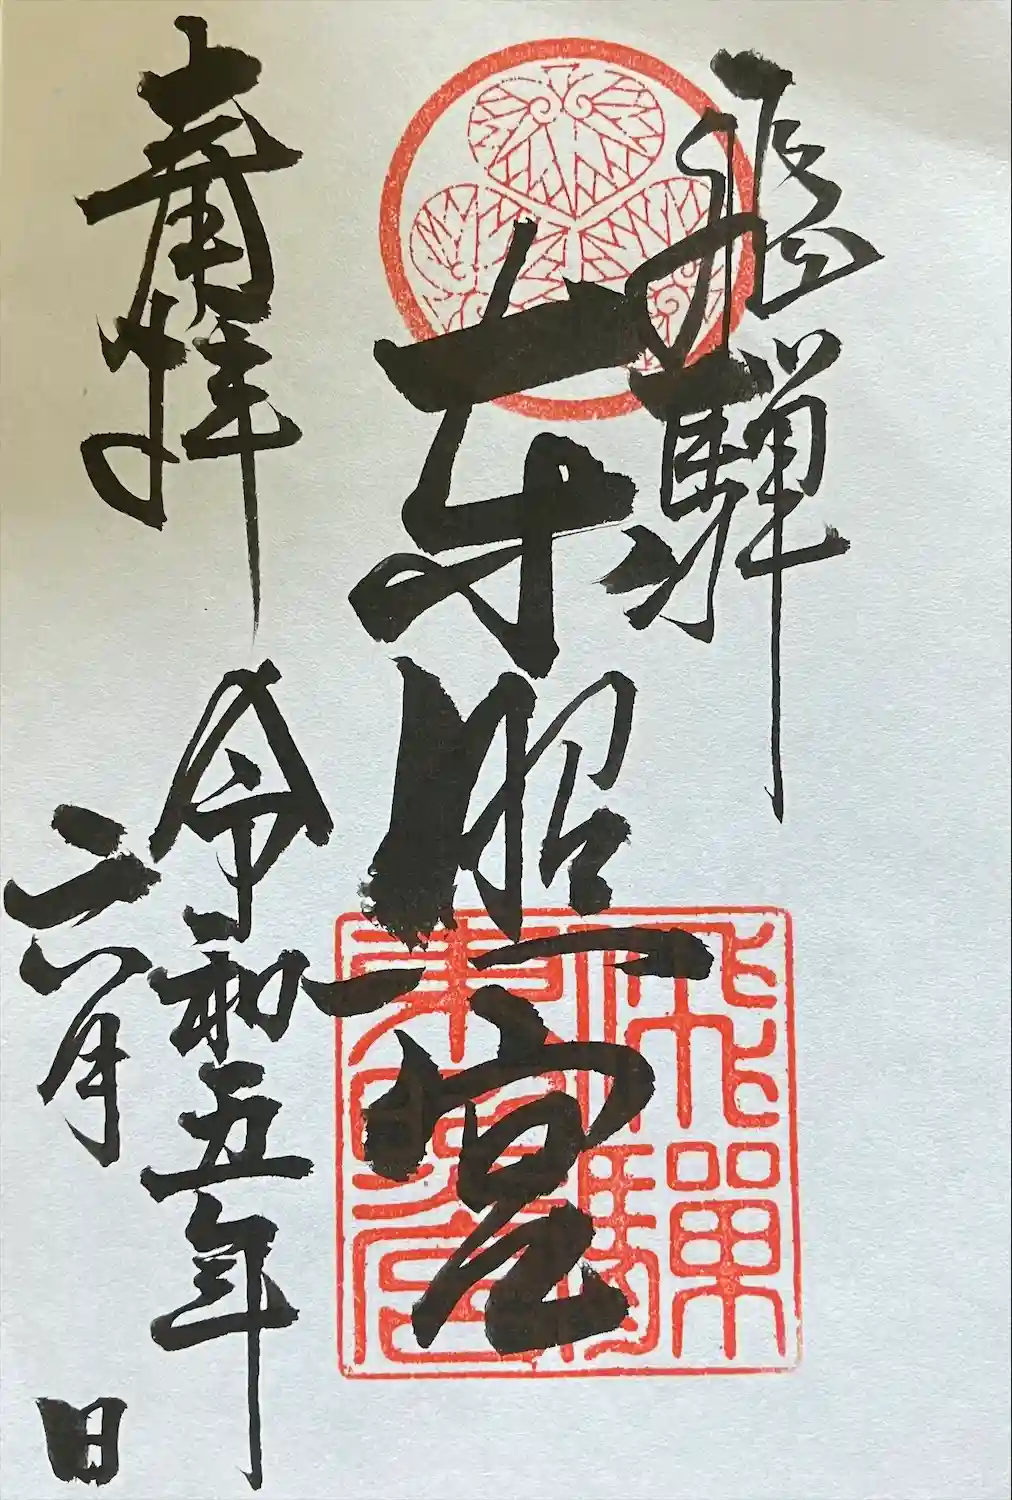 飛騨
東照宮
飛驒
東照宮
奉拝
令和五年
六月 日